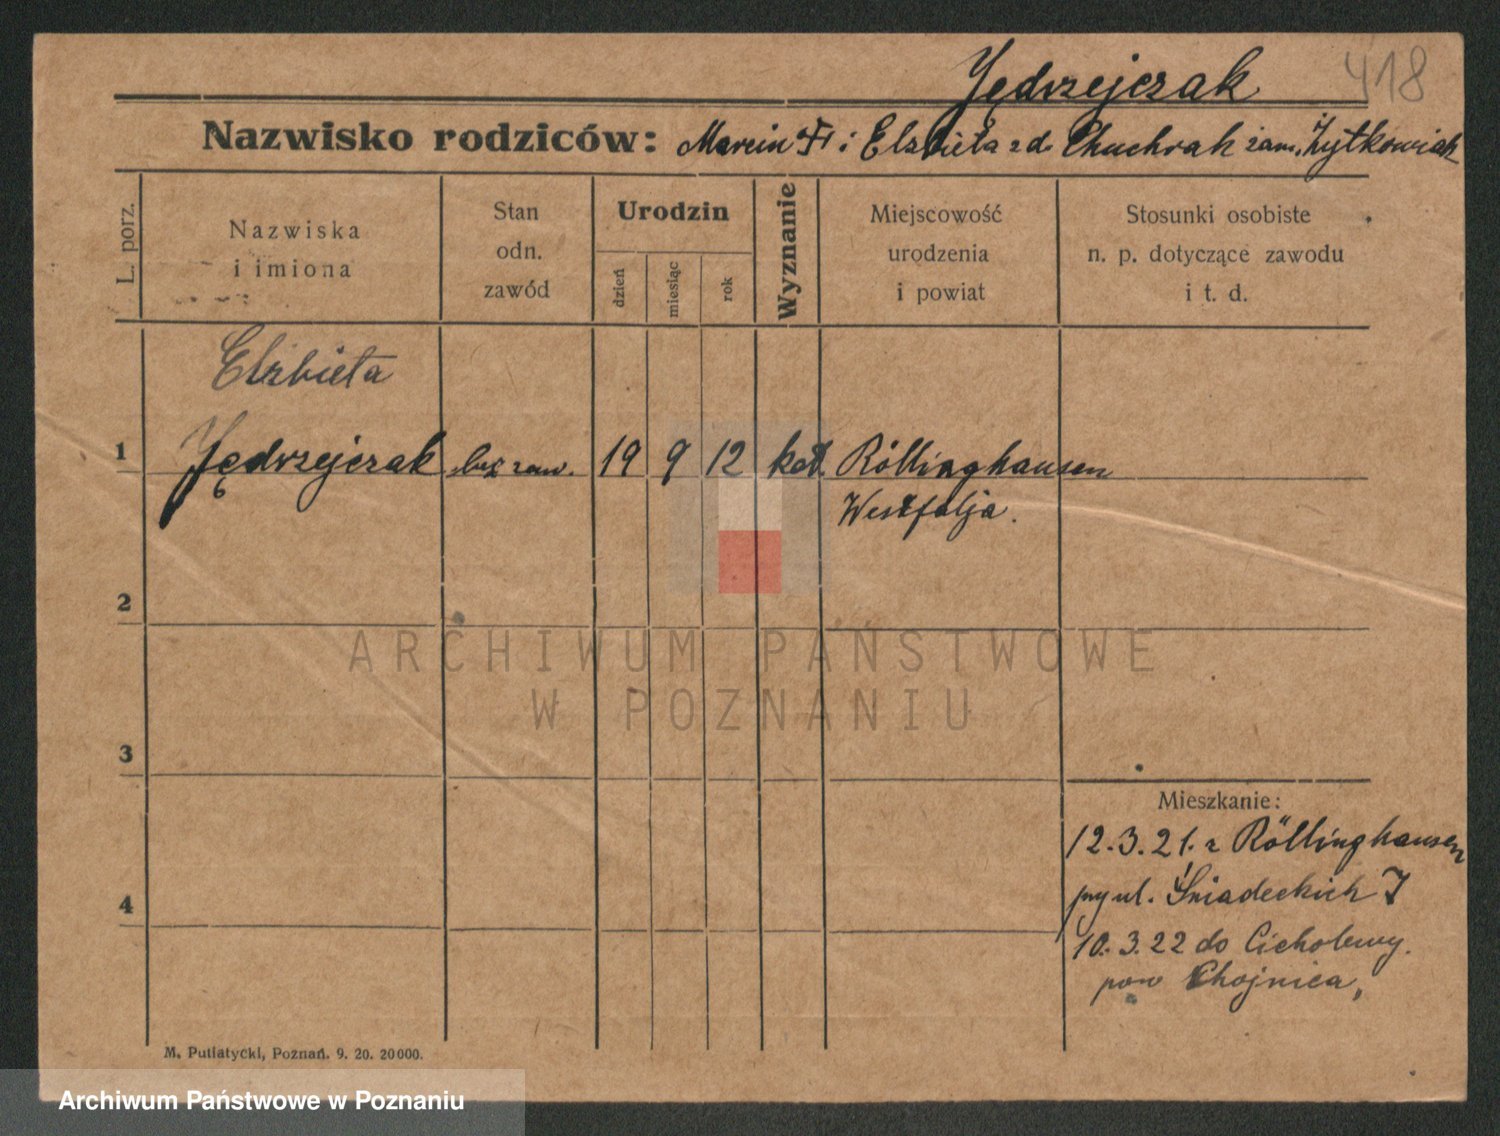 Jędrzejczak 418
Nazwisko rodziców: Marcin i Elzbieta z d. Chuchrak zam. Żytkowiak
L. porz.
Nazwiska
i imiona
Stan
odn.
zawód
Urodzin
dzień
miesiąc
rok
Wyznanie
Miejscowość
urodzenia
i powiat
Stosunki osobiste
n. p. dotyczące zawodu
i t. d.
Elzbieta
1 Jędrzejczak bez zaw. 19 9 12 kat. Röllinghausen
Westfalja.
2
ARCHIWUM PAŃSTWOWE
W POZNANIU
3
Mieszkanie:
12.3.21. z Röllinghausen
przy ul. Śniadeckich 7
4
10.3.22 do
pow Chojnica,
M. Putiatycki, Poznań. 9. 20. 20000.
Archiwum Państwowe w Poznaniu